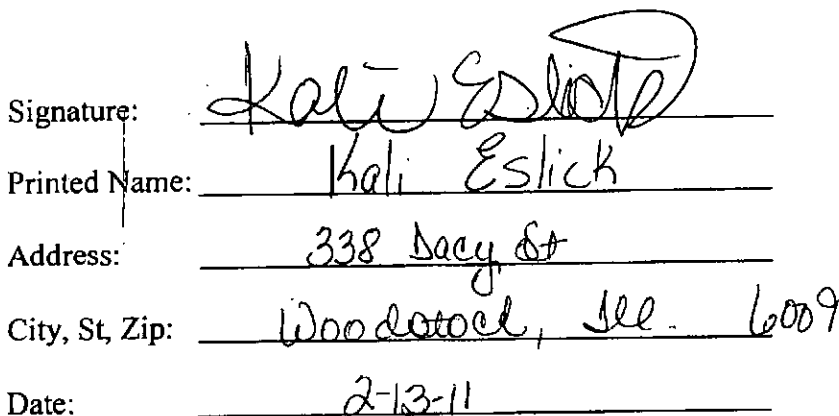 Signature: Kali Eslick
Printed Name: Kali Eslick
Address: 338 Dacy St
City, St, Zip: Woodstock, Ill. 6009
Date: 2-13-11